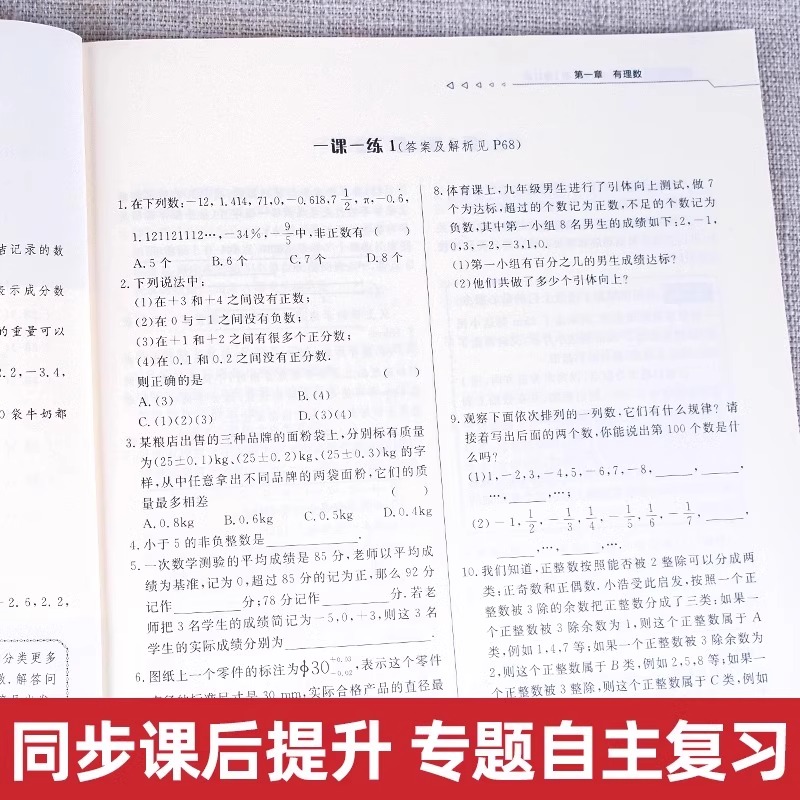 第一章 有理数
一课一练 1(答案及解析见 P68)
1. 在下列数;-12, 1.414, 71, 0, -0.618, 7 1/2, π, -0.6̇,
1.121121112…, -34%, -9/5中,非正数有 ( )
A. 5 个 B. 6 个 C. 7 个 D. 8 个
2. 下列说法中:
(1)在+3 和+4 之间没有正数;
(2)在 0 与-1 之间没有负数;
(3)在+1 和+2 之间有很多个正分数;
(4)在 0.1 和 0.2 之间没有正分数.
则正确的是 ( )
A. (3) B. (4)
C. (1)(2)(3) D. (3)(4)
3. 某粮店出售的三种品牌的面粉袋上,分别标有质量
为(25±0.1)kg、(25±0.2)kg、(25±0.3)kg 的字
样,从中任意拿出不同品牌的两袋面粉,它们的质
量最多相差 ( )
A. 0.8kg B. 0.6kg C. 0.5kg D. 0.4kg
4. 小于 5 的非负整数是____.
5. 一次数学测验的平均成绩是 85 分,老师以平均成
绩为基准,记为 0,超过 85 分的记为正,那么 92 分
记作____分;78 分记作____分. 若老
师把 3 名学生的成绩简记为-5,0,+3,则这 3 名
学生的实际成绩分别为____.
6. 图纸上一个零件的标注为ϕ30 +0.03 -0.02,表示这个零件
直径的标准尺寸是 30 mm,实际合格产品的直径最
8. 体育课上,九年级男生进行了引体向上测试,做 7
个为达标,超过的个数记为正数,不足的个数记为
负数,其中第一小组 8 名男生的成绩如下:2,-1,
0,3,-2,-3,1,0.
(1)第一小组有百分之几的男生成绩达标?
(2)他们共做了多少个引体向上?
9. 观察下面依次排列的一列数,它们有什么规律? 请
接着写出后面的两个数,你能说出第 100 个数是什
么吗?
(1)1,-2,3,-4,5,-6,7,-8,____,____,
…,____,…;
(2)-1, 1/2, -1/3, 1/4, -1/5, 1/6, -1/7, ____,
____,…,____,….
10. 我们知道,正整数按照能否被 2 整除可以分成两
类:正奇数和正偶数. 小浩受此启发,按照一个正
整数被 3 除的余数把正整数分成了三类:如果一
个正整数被 3 除余数为 1,则这个正整数属于 A
类,例如 1,4,7 等;如果一个正整数被 3 除余数为
2,则这个正整数属于 B 类,例如 2,5,8 等;如果一
个正整数被 3 整除,则这个正整数属于 C 类,例如
记录的数
表示成分数
的重量可以
2.2,-3.4,
0 袋牛奶都
-2.6,2.2,
分类更多
解答问
同步课后提升 专题自主复习